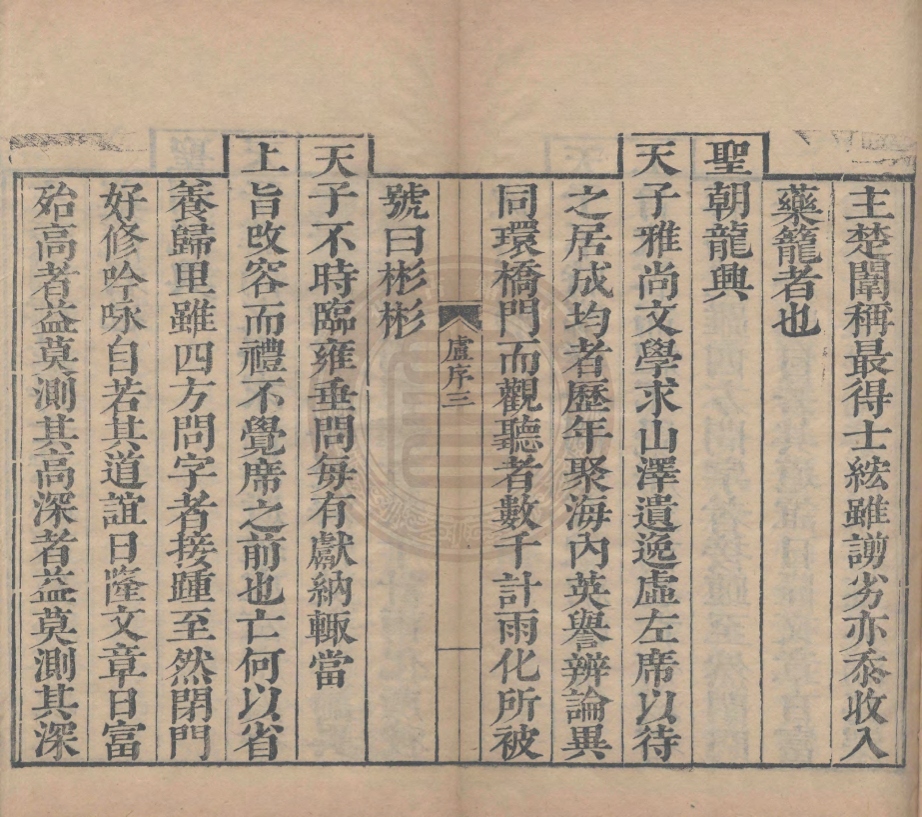 主楚闈稱最得士紘雖謭劣亦忝收入
藥籠者也
聖朝龍興
天子雅尚文學求山澤遺逸虛左席以待
之居成均者歷年聚海內英譽辨論異
同環橋門而觀聽者數千計雨化所被
盧序三
號曰彬彬
天子不時臨雍垂問每有獻納輙當
上旨改容而禮不覺席之前也亡何以省
養歸里雖四方問字者接踵至然閉門
好修吟咏自若其道誼日隆文章日富
殆高者益莫測其高深者益莫測其深